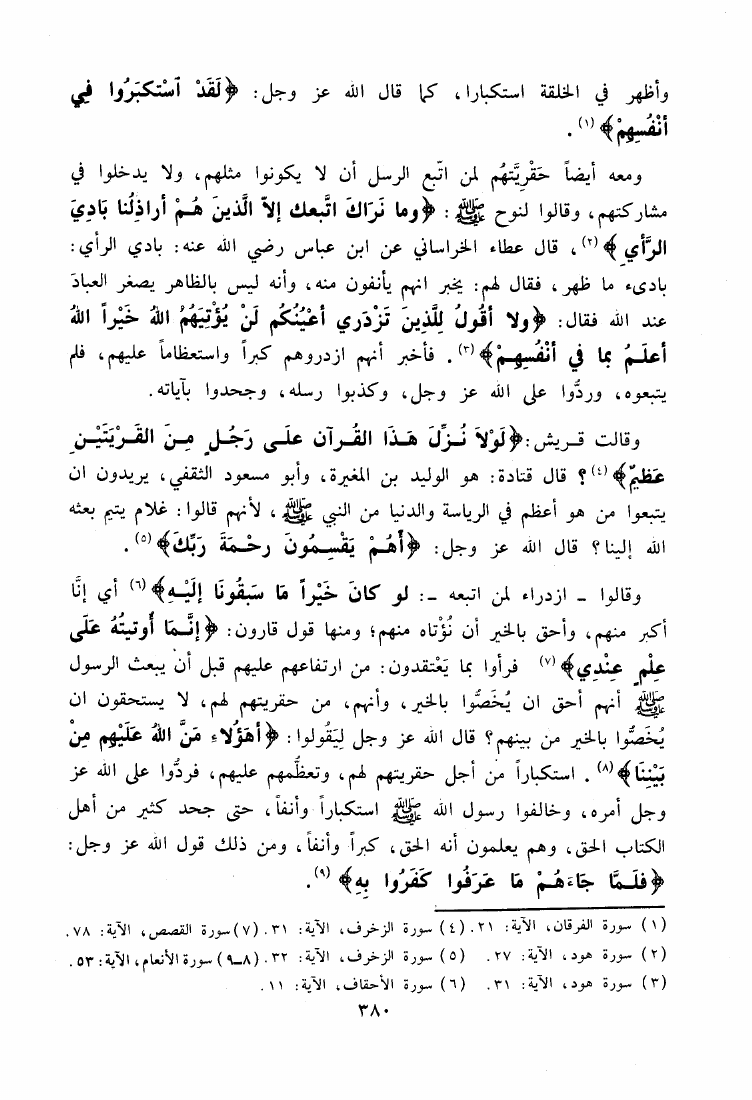 وأظهر في الخلقة استكبارا، كما قال الله عز وجل: ﴿لَقَدْ ٱسْتكبَرُوا فِي
أنْفُسِهِمْ﴾ (١) .
ومعه أيضاً حَقْرِيَّتهُم لمن اتّبع الرسل أن لا يكونوا مثلهم، ولا يدخلوا في
مشاركتهم، وقالوا لنوح ﷺ : ﴿وما نَرَاكَ اتَّبعك إلاّ الَّذينَ هُمْ أراذِلُنا بَادِيَ
الرَّأيِ ﴾ (٢) ، قال عطاء الخراساني عن ابن عباس رضي الله عنه: بادي الرأي:
بادىء ما ظهر، فقال لهم: يخبر انهم يأنفون منه، وأنه ليس بالظاهر يصغر العبادَ
عند الله فقال: ﴿ولا أقُولُ لِلَّذينَ تَزْدَري أعْيُنُكُم لَنْ يُؤْتِيَهُمُ اللهُ خَيْراً اللهُ
أعلَمُ بما في أنْفُسِهِمْ﴾ (٣) . فأخبر أنهم ازدروهم كبراً واستعظاماً عليهم، فلم
يتبعوه، وردُّوا على الله عز وجل، وكذبوا رسله، وجحدوا بآياته.
وقالت قريش: ﴿لَوْلاَ نُزِّلَ هَذَا القُرآن علَى رَجُلٍ مِنَ القَرْيَتَيْنِ
عَظيمٌ﴾ (٤) ؟ قال قتادة: هو الوليد بن المغيرة، وأبو مسعود الثقفي، يريدون ان
يتبعوا من هو أعظم في الرياسة والدنيا من النبي ﷺ ، لأنهم قالوا: غلام يتيم بعثه
الله إلينا؟ قال الله عز وجل: ﴿أَهُمْ يَقْسِمُونَ رحْمَةَ رَبِّكَ﴾ (٥) .
وقالوا ـ ازدراء لمن اتبعه ـ: لو كانَ خَيْراً مَا سَبقُونَا إلَيْهِ﴾ (٦) أي إنَّا
أكبر منهم، وأحق بالخير أن نُؤْتاه منهم؛ ومنها قول قارون: ﴿إنَّمَا أُوتيتُهُ عَلَى
عِلْمٍ عِنْدِي﴾ (٧) فرأوا بما يَعْتقدون: من ارتفاعهم عليهم قبل أن يبعث الرسول
ﷺ أنهم أحق ان يُخَصُّوا بالخير، وأنهم، من حقريتهم لهم، لا يستحقون ان
يُخَصُّوا بالخير من بينهم؟ قال الله عز وجل لِيَقُولوا: ﴿أهَؤُلاءِ مَنَّ اللهُ عَلَيْهِم مِنْ
بَيْنِنَا﴾ (٨) . استكباراً من أجل حقريتهم لهم، وتعظُّمهم عليهم، فردُّوا على الله عز
وجل أمره، وخالفوا رسول الله ﷺ استكباراً وأنفاً، حتى جحد كثير من أهل
الكتاب الحق، وهم يعلمون أنه الحق، كبراً وأنفاً، ومن ذلك قول الله عز وجل:
﴿فلَمَّا جاءَهُمْ مَا عَرفُوا كَفَرُوا بِهِ﴾ (٩) .
(١) سورة الفرقان، الآية: ٢١. (٤) سورة الزخرف، الآية: ٣١. (٧) سورة القصص، الآية: ٧٨.
(٢) سورة هود، الآية: ٢٧. (٥) سورة الزخرف، الآية: ٣٢. (٨ـ٩) سورة الأنعام، الآية: ٥٣.
(٣) سورة هود، الآية: ٣١. (٦) سورة الأحقاف، الآية: ١١.
٣٨٠